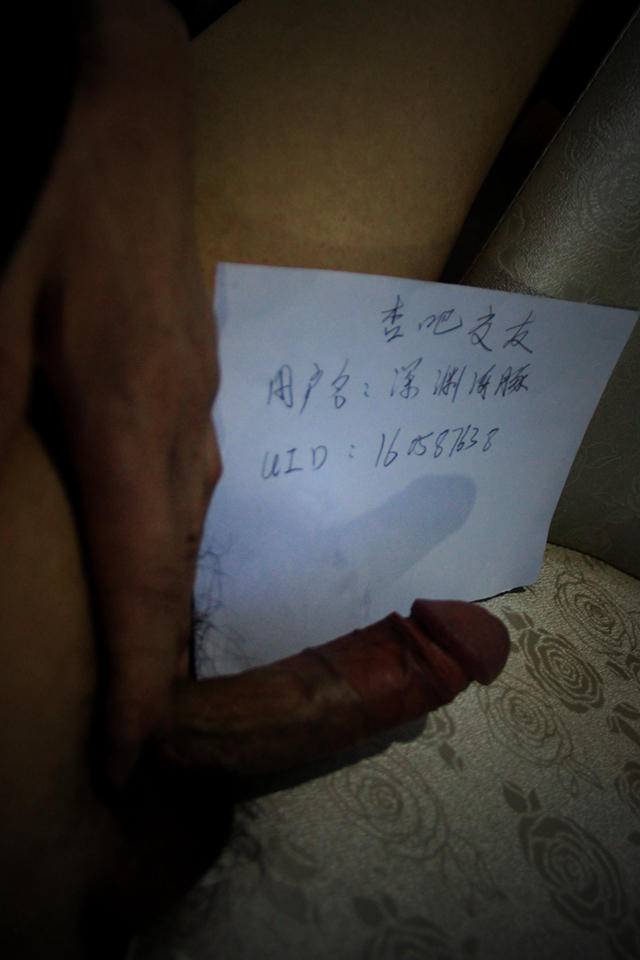 杏吧交友
用户名：深渊海豚
UID：160587638